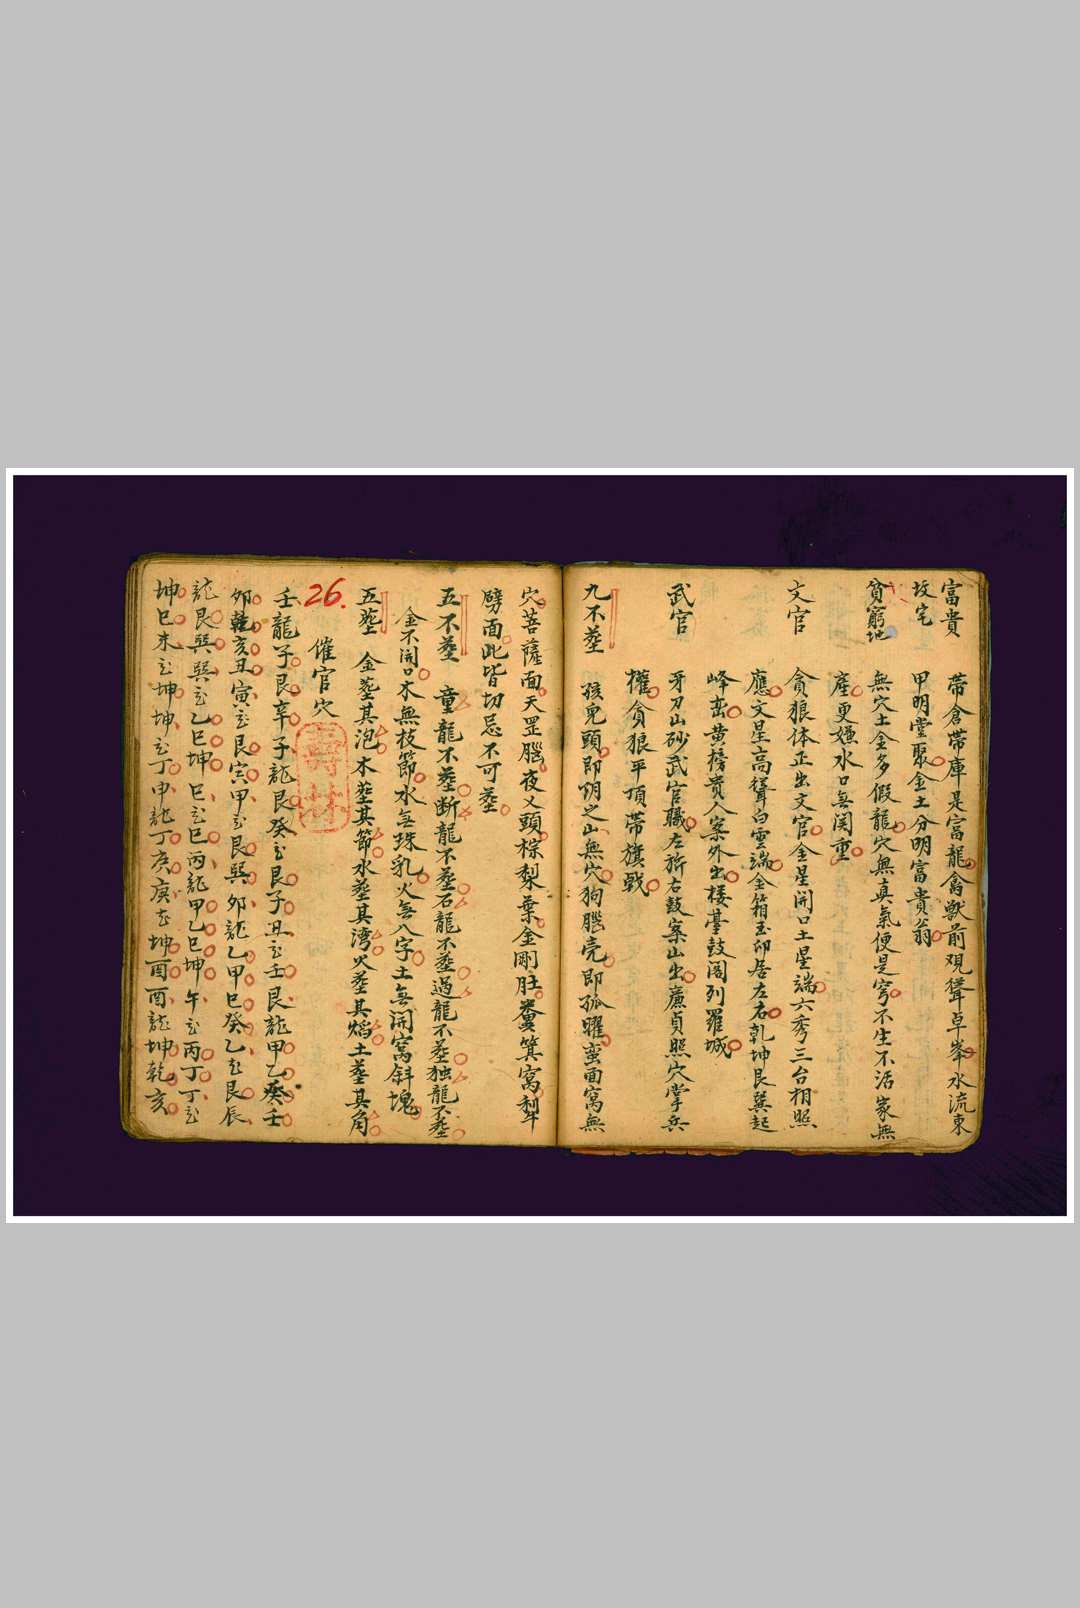 富貴 帶倉帶庫是富龍禽獸前观聳卓峯水流東
坟宅 甲明堂聚金土分明富貴翁
貧窮地 無穴土全多假龍穴無真氣便是穹不生不活家無
産更嫌水口無関重
文官 貪狼体正出文官金星開口土星端六秀三台相照
應文星高聳白雲端金箱玉印居左右乾坤艮巽起
峰峦黄榜贵人案外出楼臺鼓阁列羅城
武官 牙刀山砂武官職左旂右鼓案山出廉貞照穴掌兵
權貪狼平頂帶旗戟
九不塟 孩兒頭即朗之山無穴狗腦壳即孤曜蛮面窩無
穴菩薩面天罡腦夜乂頭棕梨葉金剛肚糞箕窩犁
劈面此皆切忌不可塟
五不塟 童龍不塟断龍不塟石龍不塟過龍不塟独龍不塟
金不開口木無枝節水無珠乳火無八字土無開窩斜塊
五塟 金塟其泡木塟其節水塟其湾火塟其焰土塟其角
26. 催官穴
壽林
壬龍子艮辛子龍艮癸艮子丑壬艮龍甲乙癸壬
卯乾亥丑寅艮寅甲艮巽卯龍乙甲巳癸乙艮辰
龍艮巽巽乙巳坤巳巳丙龍甲乙巳坤午丙丁丁
坤巳未坤坤丁申龍丁亥庚坤酉酉龍坤乾亥